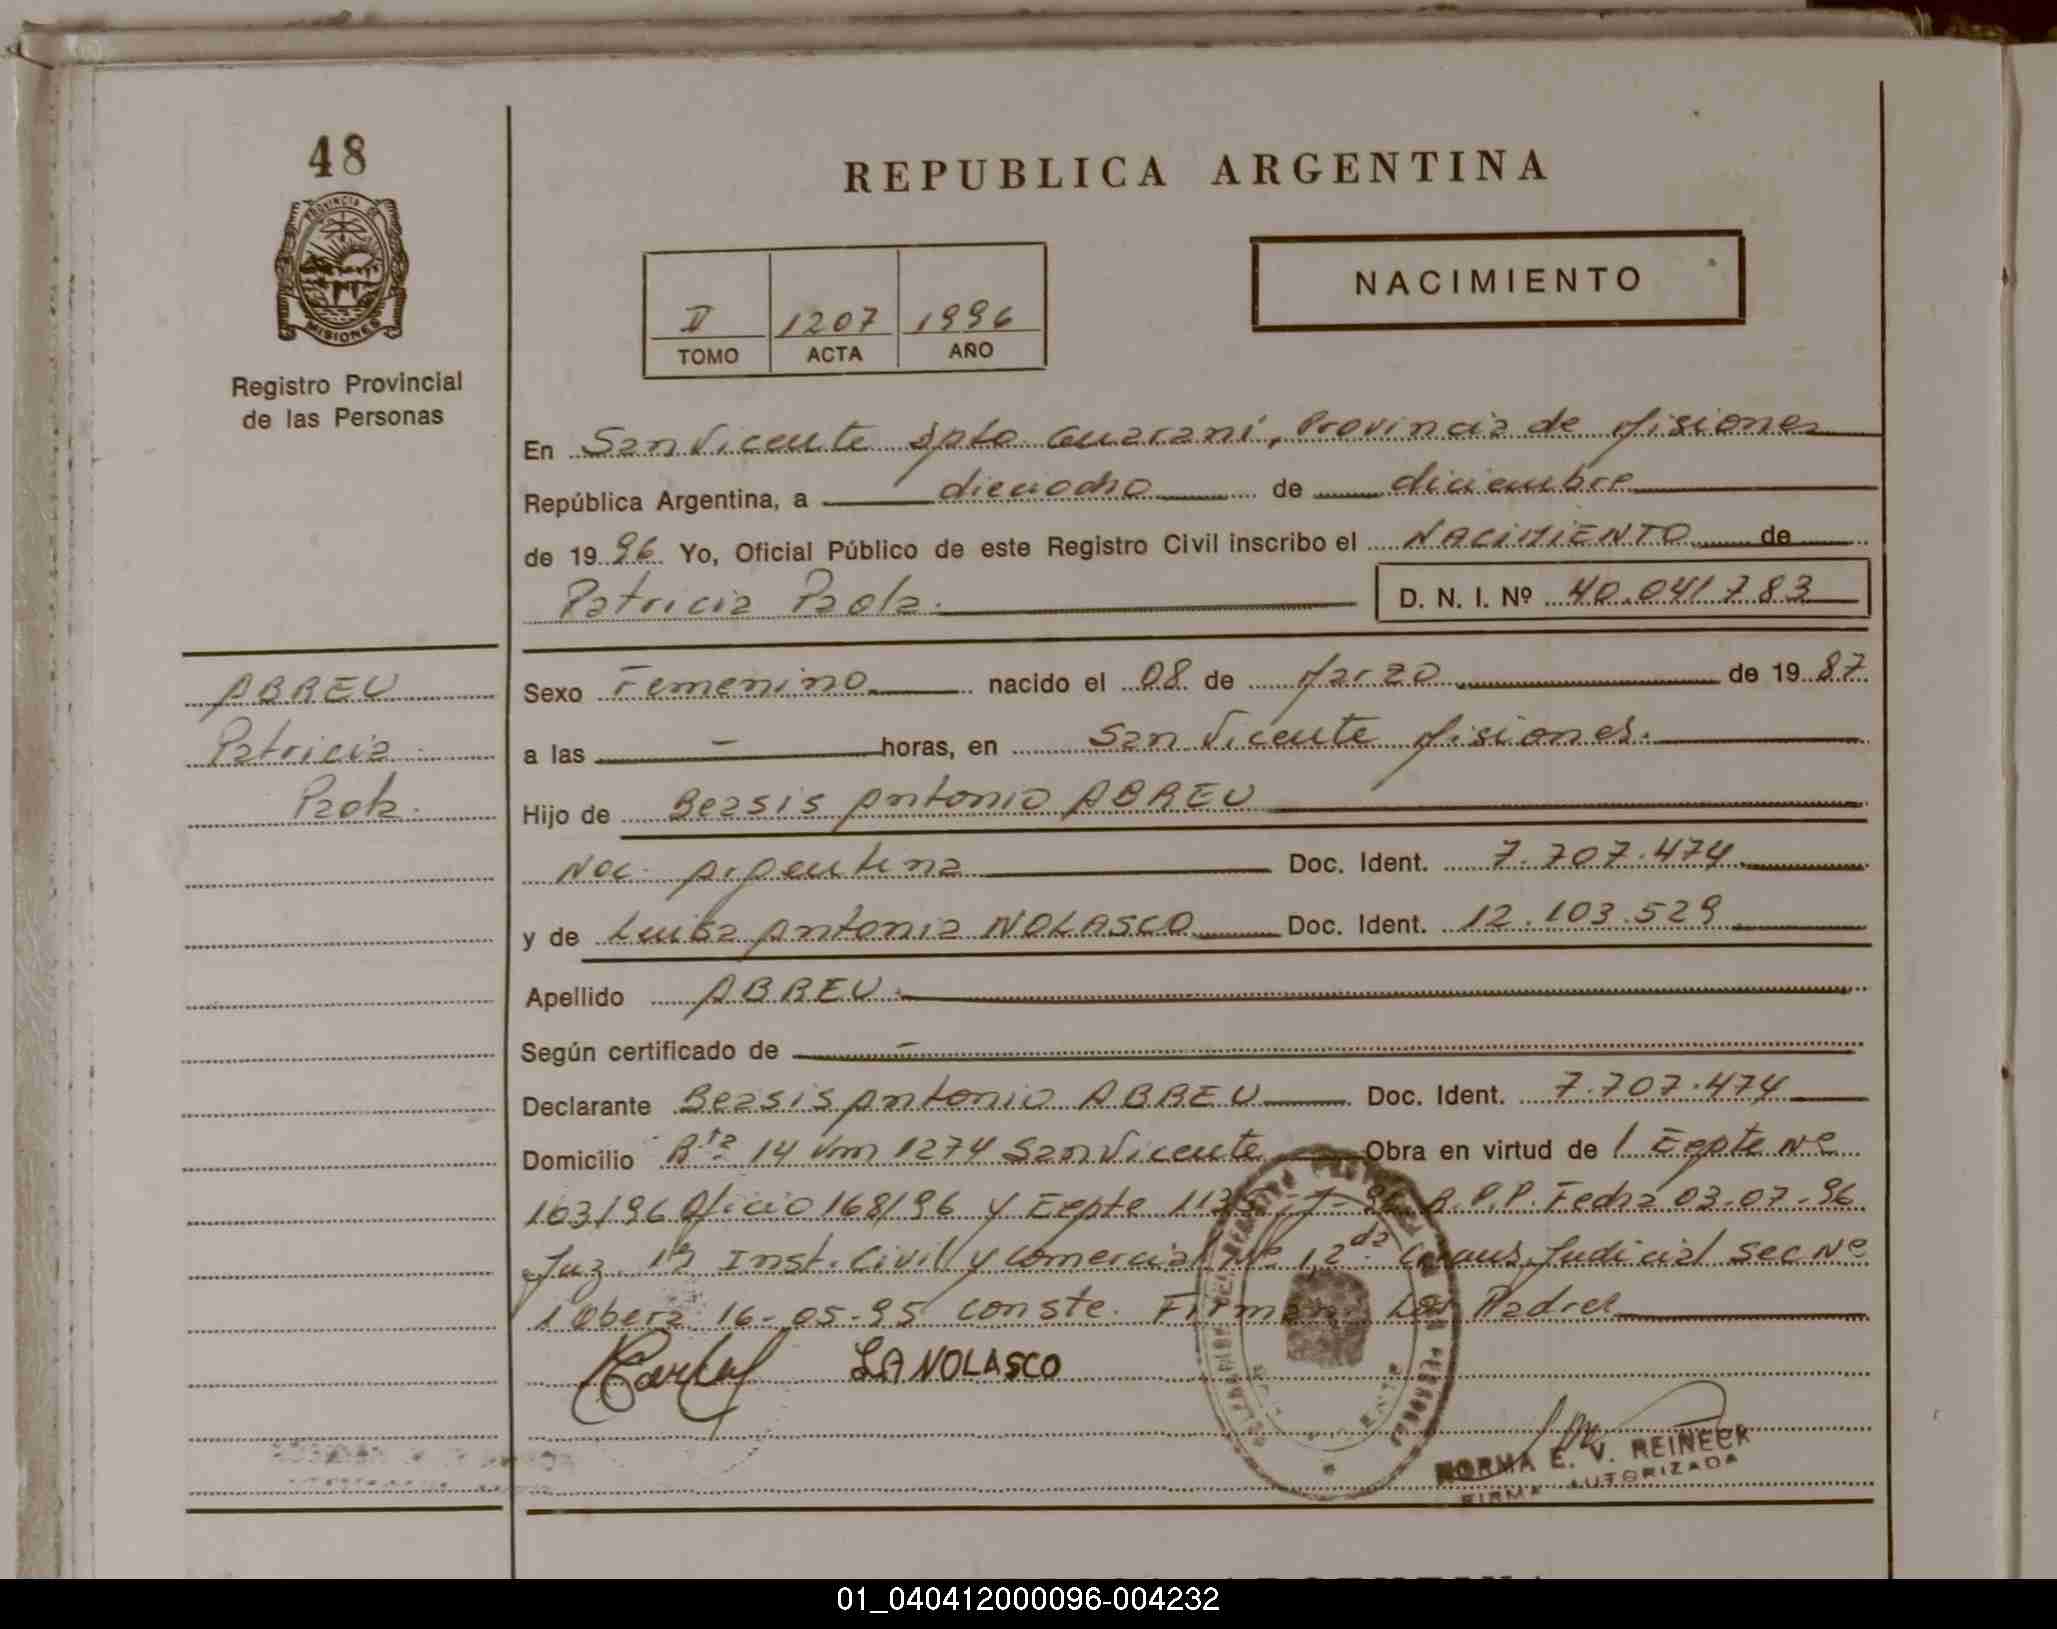 48
PROVINCIA DE
MISIONES
Registro Provincial
de las Personas
REPUBLICA ARGENTINA
NACIMIENTO
II 1207 1996
TOMO ACTA AÑO
En San Vicente Dpto Guaraní, Provincia de Misiones
República Argentina, a dieciocho de diciembre
de 1996 Yo, Oficial Público de este Registro Civil inscribo el NACIMIENTO de
Patricia Paola. D. N. I. Nº 40.041783
ABREU
Patricia
Paola.
Sexo Femenino nacido el 08 de Marzo de 1987
a las – horas, en San Vicente Misiones.
Hijo de Beasis Antonio ABREU
Nac. Argentina Doc. Ident. 7.707.474
y de Luisa Antonia NOLASCO Doc. Ident. 12.103.529
Apellido ABREU.
Según certificado de –
Declarante Beasis Antonio ABREU Doc. Ident. 7.707.474
Domicilio Rta 14 Km 1274 San Vicente Obra en virtud de 1 Expte Nº
103/96 Oficio 168/96 y Expte R.P.P. Fecha 03-07-96
Juz. 1ª Inst. Civil y Comercial Nº 1, 2da Judicial Sec Nº
1 Obera 16-05-95 conste. Firman Los Padres
LA NOLASCO
NORMA E. V. REINECK
FIRMA AUTORIZADA
01_040412000096-004232